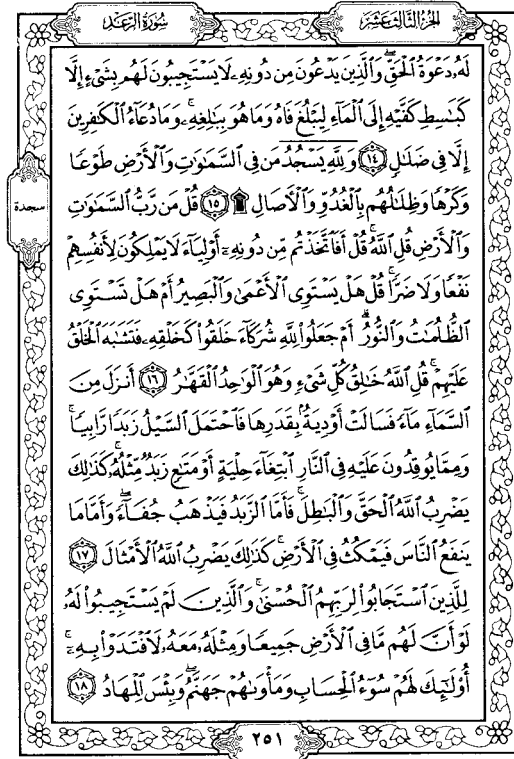 سُورَةُ الرَّعْدِ
الجُزْءُ الثَّالِثَ عَشَرَ
لَهُۥ دَعْوَةُ ٱلْحَقِّ ۖ وَٱلَّذِينَ يَدْعُونَ مِن دُونِهِۦ لَا يَسْتَجِيبُونَ لَهُم بِشَىْءٍ إِلَّا
كَبَٰسِطِ كَفَّيْهِ إِلَى ٱلْمَآءِ لِيَبْلُغَ فَاهُ وَمَا هُوَ بِبَٰلِغِهِۦ ۚ وَمَا دُعَآءُ ٱلْكَٰفِرِينَ
إِلَّا فِى ضَلَٰلٍ ١٤ وَلِلَّهِ يَسْجُدُ مَن فِى ٱلسَّمَٰوَٰتِ وَٱلْأَرْضِ طَوْعًا
وَكَرْهًا وَظِلَٰلُهُم بِٱلْغُدُوِّ وَٱلْءَاصَالِ ۩ ١٥ قُلْ مَن رَّبُّ ٱلسَّمَٰوَٰتِ
سجدة
وَٱلْأَرْضِ قُلِ ٱللَّهُ ۚ قُلْ أَفَٱتَّخَذْتُم مِّن دُونِهِۦٓ أَوْلِيَآءَ لَا يَمْلِكُونَ لِأَنفُسِهِمْ
نَفْعًا وَلَا ضَرًّا ۚ قُلْ هَلْ يَسْتَوِى ٱلْأَعْمَىٰ وَٱلْبَصِيرُ أَمْ هَلْ تَسْتَوِى
ٱلظُّلُمَٰتُ وَٱلنُّورُ ۗ أَمْ جَعَلُوا۟ لِلَّهِ شُرَكَآءَ خَلَقُوا۟ كَخَلْقِهِۦ فَتَشَٰبَهَ ٱلْخَلْقُ
عَلَيْهِمْ ۚ قُلِ ٱللَّهُ خَٰلِقُ كُلِّ شَىْءٍ وَهُوَ ٱلْوَٰحِدُ ٱلْقَهَّٰرُ ١٦ أَنزَلَ مِنَ
ٱلسَّمَآءِ مَآءً فَسَالَتْ أَوْدِيَةٌۢ بِقَدَرِهَا فَٱحْتَمَلَ ٱلسَّيْلُ زَبَدًا رَّابِيًا ۚ
وَمِمَّا يُوقِدُونَ عَلَيْهِ فِى ٱلنَّارِ ٱبْتِغَآءَ حِلْيَةٍ أَوْ مَتَٰعٍ زَبَدٌ مِّثْلُهُۥ ۚ كَذَٰلِكَ
يَضْرِبُ ٱللَّهُ ٱلْحَقَّ وَٱلْبَٰطِلَ ۚ فَأَمَّا ٱلزَّبَدُ فَيَذْهَبُ جُفَآءً ۖ وَأَمَّا مَا
يَنفَعُ ٱلنَّاسَ فَيَمْكُثُ فِى ٱلْأَرْضِ ۚ كَذَٰلِكَ يَضْرِبُ ٱللَّهُ ٱلْأَمْثَالَ ١٧
لِلَّذِينَ ٱسْتَجَابُوا۟ لِرَبِّهِمُ ٱلْحُسْنَىٰ ۚ وَٱلَّذِينَ لَمْ يَسْتَجِيبُوا۟ لَهُۥ
لَوْ أَنَّ لَهُم مَّا فِى ٱلْأَرْضِ جَمِيعًا وَمِثْلَهُۥ مَعَهُۥ لَٱفْتَدَوْا۟ بِهِۦٓ ۚ
أُو۟لَٰٓئِكَ لَهُمْ سُوٓءُ ٱلْحِسَابِ وَمَأْوَىٰهُمْ جَهَنَّمُ ۖ وَبِئْسَ ٱلْمِهَادُ ١٨
٢٥١